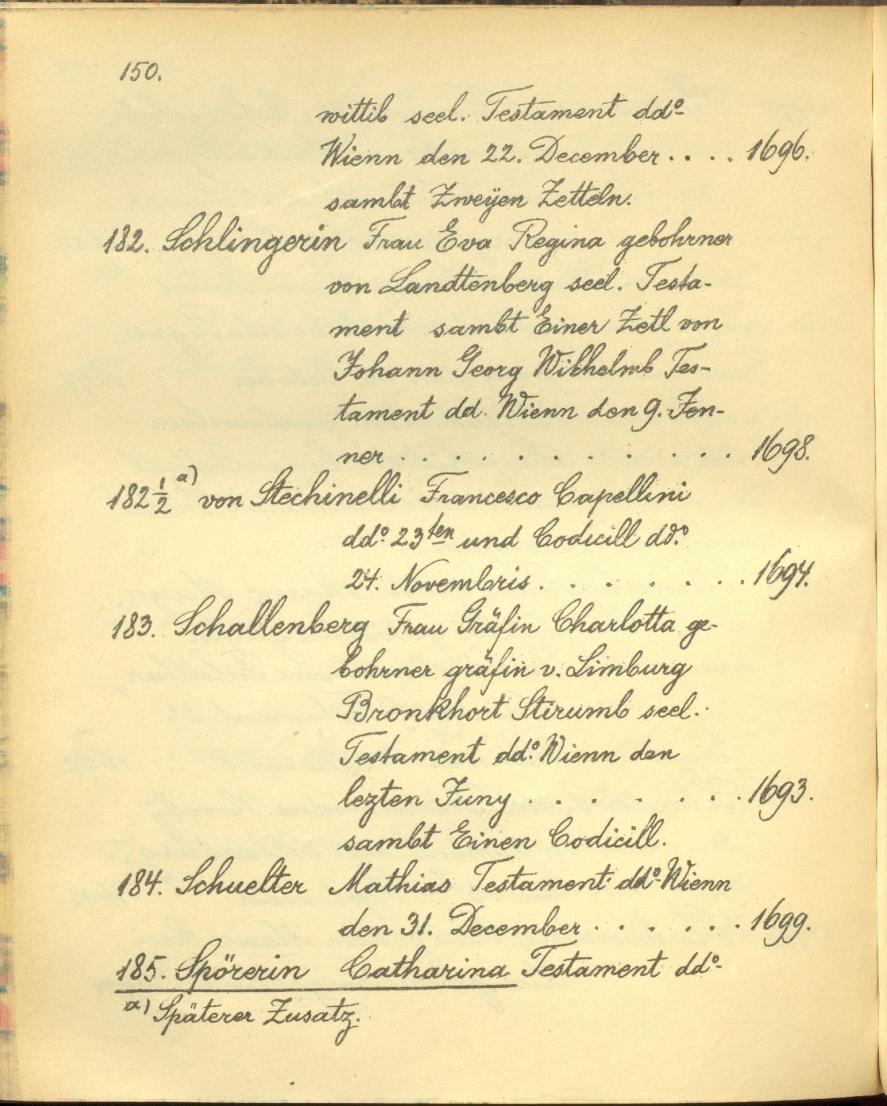 150.
wittib seel. Testament ddº
Wienn den 22. December . . . . 1696.
sambt Zweÿen Zetteln.
182. Schlingerin Frau Eva Regina gebohrner
von Landtenberg seel. Testa-
ment sambt Einer Zetl von
Johann Georg Wilhelmb Tes-
tament dd. Wienn den 9. Jen-
ner . . . . . . . . . . . . 1698.
182 ½ a) von Stechinelli Francesco Capellini
ddº 23ten und Codicill ddº
24. Novembris . . . . . . . 1694.
183. Schallenberg Frau Gräfin Charlotta ge-
bohrner gräfin v. Limburg
Bronkhort Stirumb seel.
Testament ddº Wienn den
lezten Juny . . . . . . . 1693.
sambt Einen Codicill.
184. Schuelter Mathias Testament ddº Wienn
den 31. December . . . . . . 1699.
185. Spörerin Catharina Testament ddº
a) Späterer Zusatz.